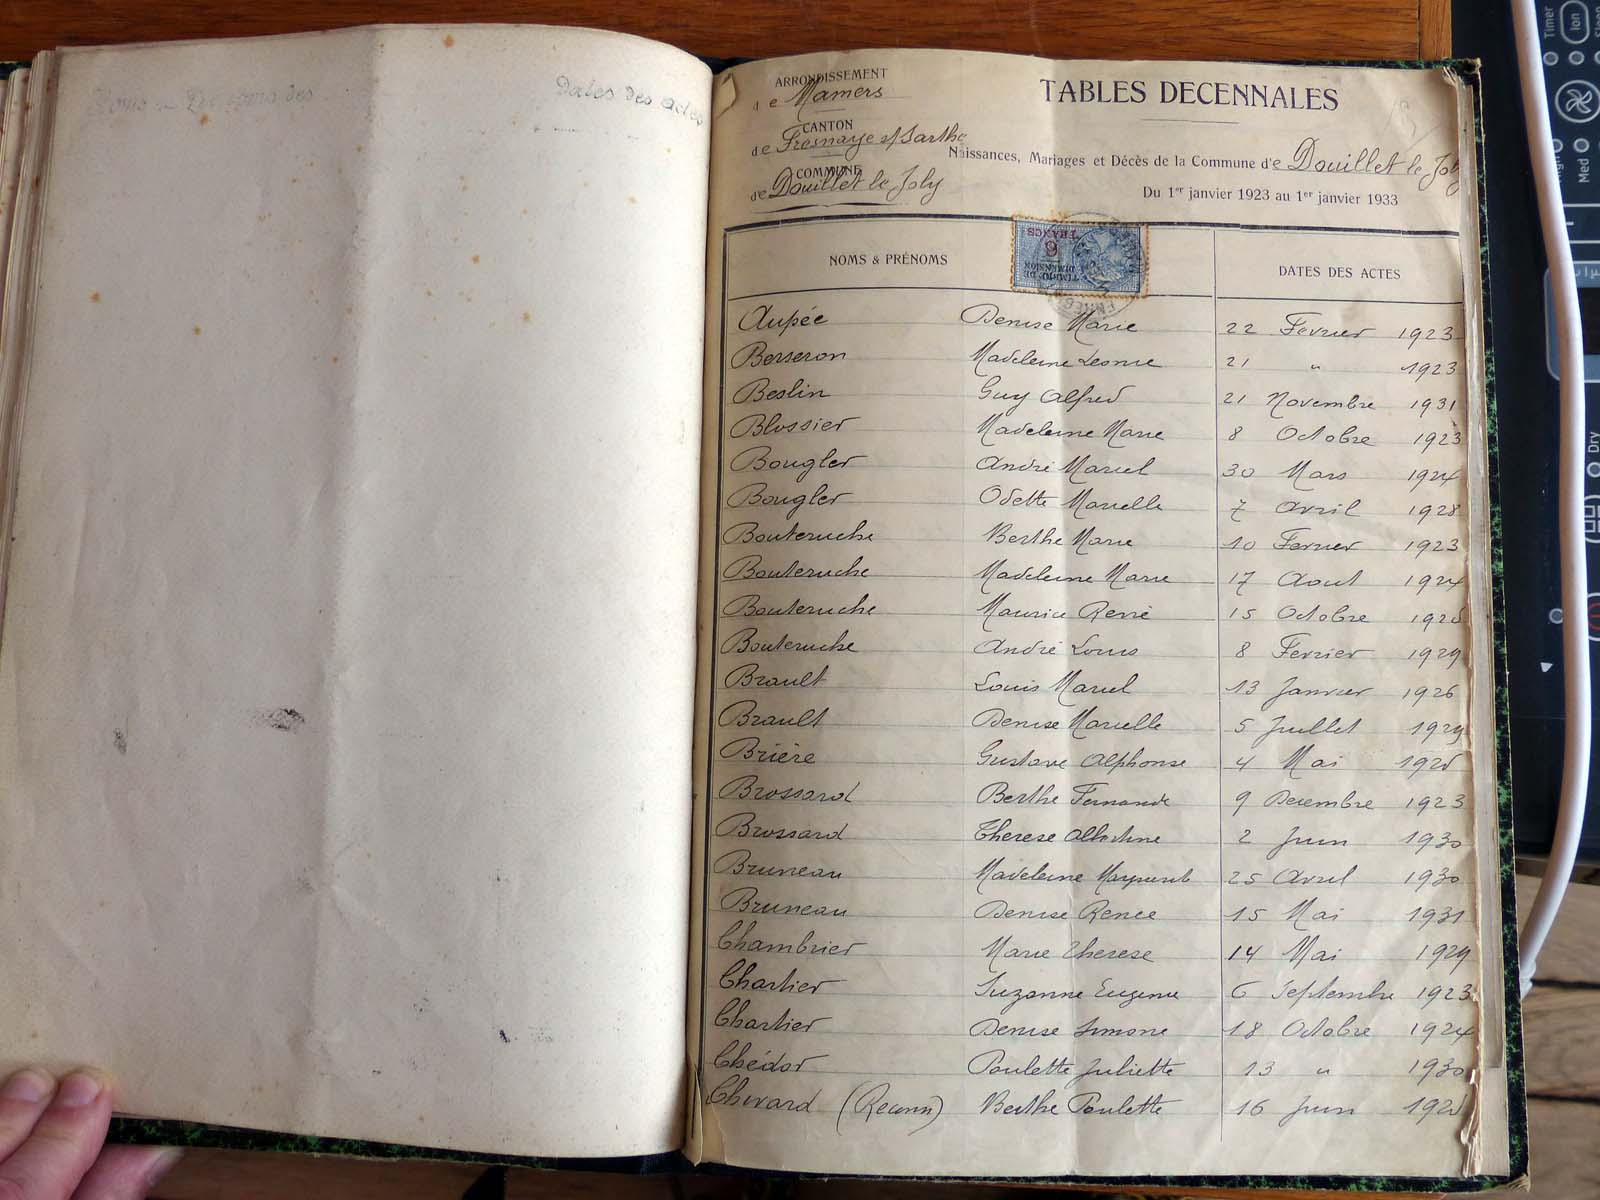 Dates des actes
ARRONDISSEMENT
de Mamers
CANTON
de Fresnaye s/ Sarthe
COMMUNE
de Douillet le Joly
TABLES DECENNALES
Naissances, Mariages et Décès de la Commune de Douillet le Joly
Du 1er janvier 1923 au 1er janvier 1933
NOMS & PRÉNOMS DATES DES ACTES
TIMBRE DE DIMENSION
6 FRANCS
Aupée Denise Marie 22 Fevrier 1923
Berseron Madeleine Leonie 21 " 1923
Beslin Guy Alfred 21 Novembre 1931
Blossier Madeleine Marie 8 Octobre 1923
Bougler André Marcel 30 Mars 1924
Bougler Odette Marcelle 7 Avril 1928
Bouteruche Berthe Marie 10 Fevrier 1923
Bouteruche Madeleine Marie 17 Aout 1924
Bouteruche Maurice René 15 Octobre
Bouteruche André Louis 8 Fevrier 1929
Brault Louis Marcel 13 Janvier 1926
Brault Denise Marcelle 5 Juillet 1929
Brière Gustave Alphonse 4 Mai
Brossard Berthe Fernande 9 Decembre 1923
Brossard Therese Albertine 2 Juin 1930
Bruneau Madeleine 25 Avril 1930
Bruneau Denise Renee 15 Mai 1931
Chambrier Marie Therese 14 Mai 1929
Chartier Suzanne Eugenie 6 Septembre 1923
Chartier Denise Simone 18 Octobre 1924
Chédor Paulette Juliette 13 " 1930
Chevard (Reconn) Berthe Paulette 16 Juin
Timer
Ion
Med
Dry